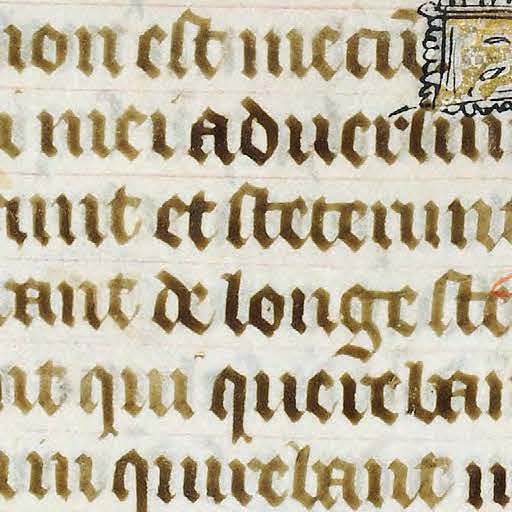 non est mecū
mei aduersum
runt et steterunt
rant de longe ste
nt qui querebant
in quirebant m